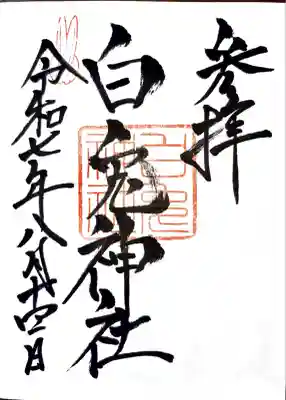 参拝
白兎神社
令和七年八月十四日